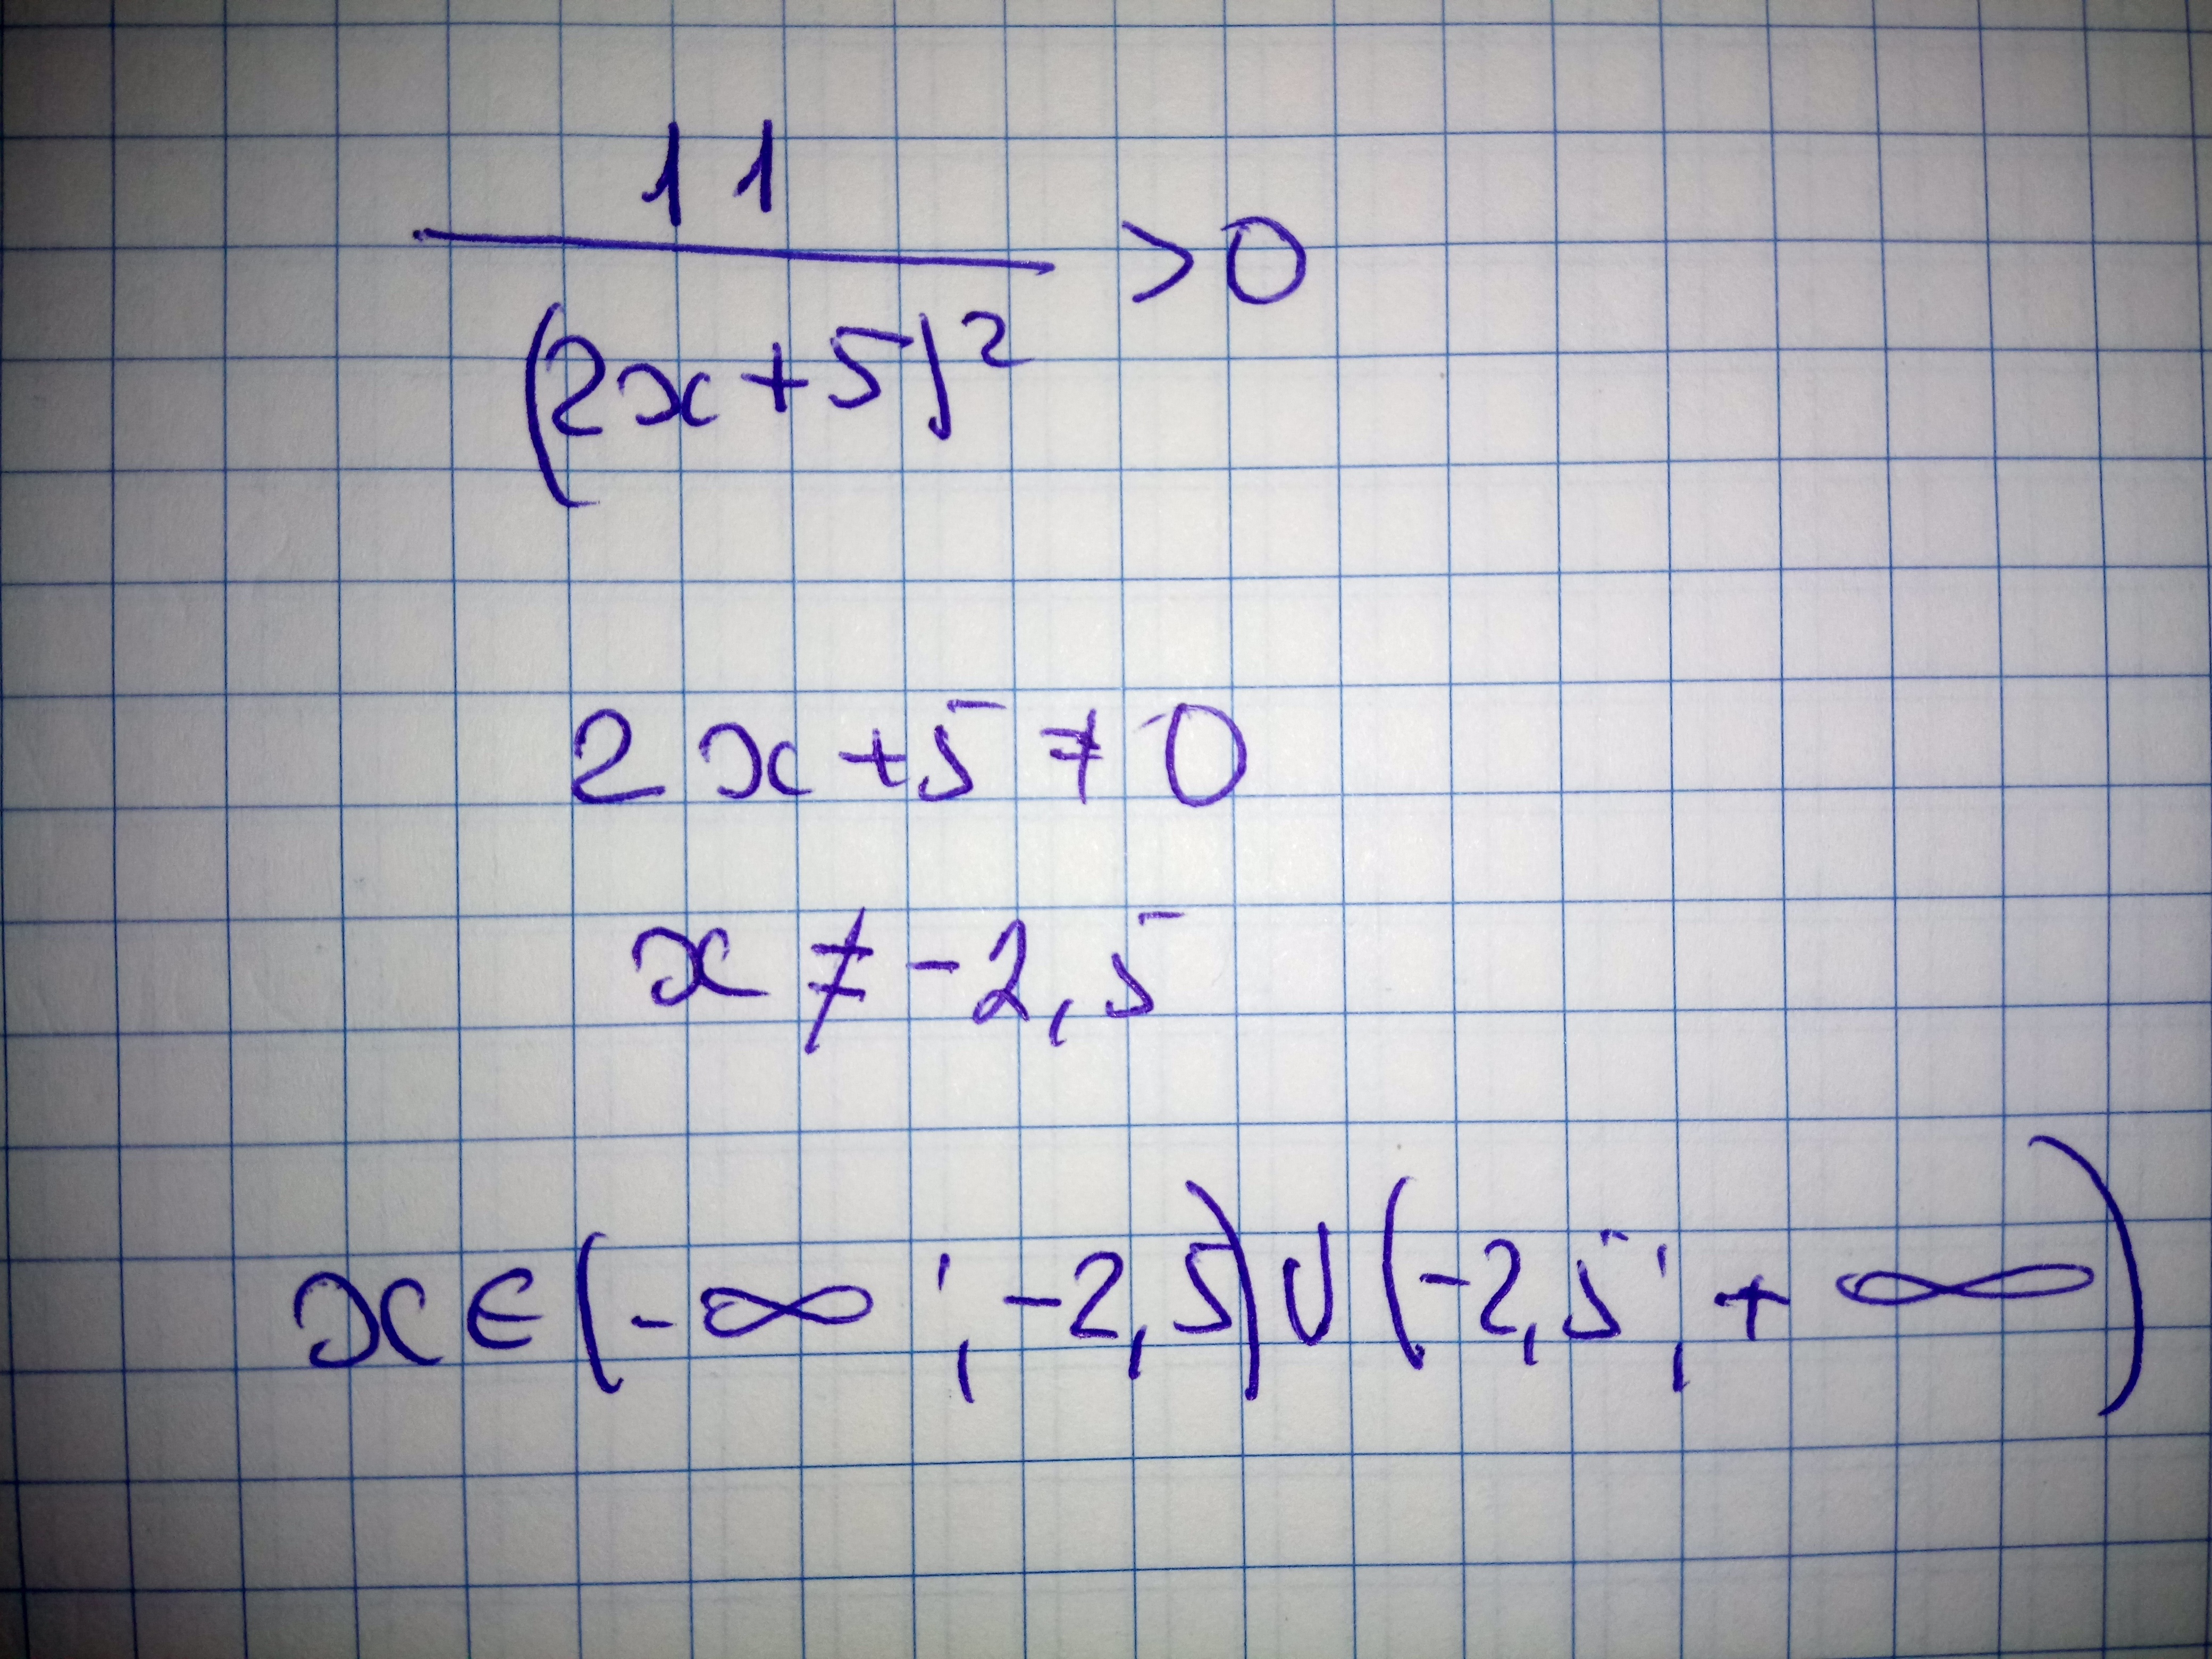 11
/(2x+5)² >0
2x+5≠0
x≠-2,5
x∈(-∞;-2,5)∪(-2,5;+∞)